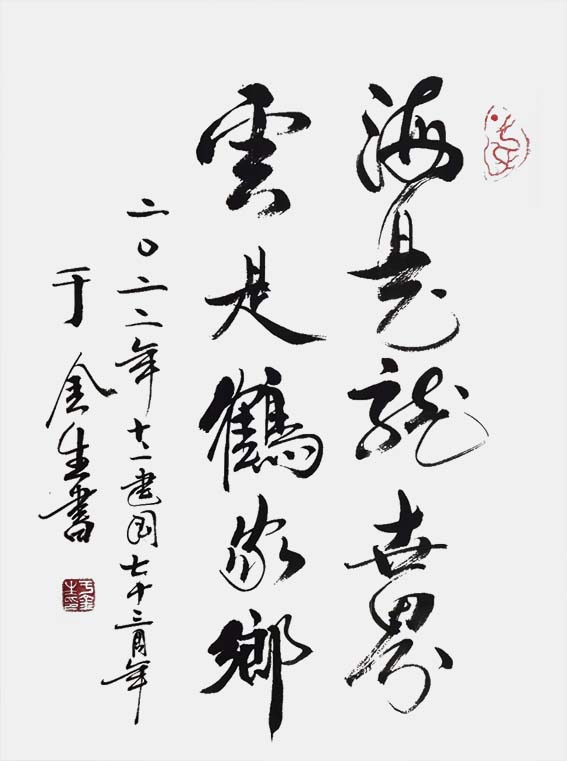 海是龍世界
雲是鶴家鄉
二〇二二年十一建國七十三周年
于金生書